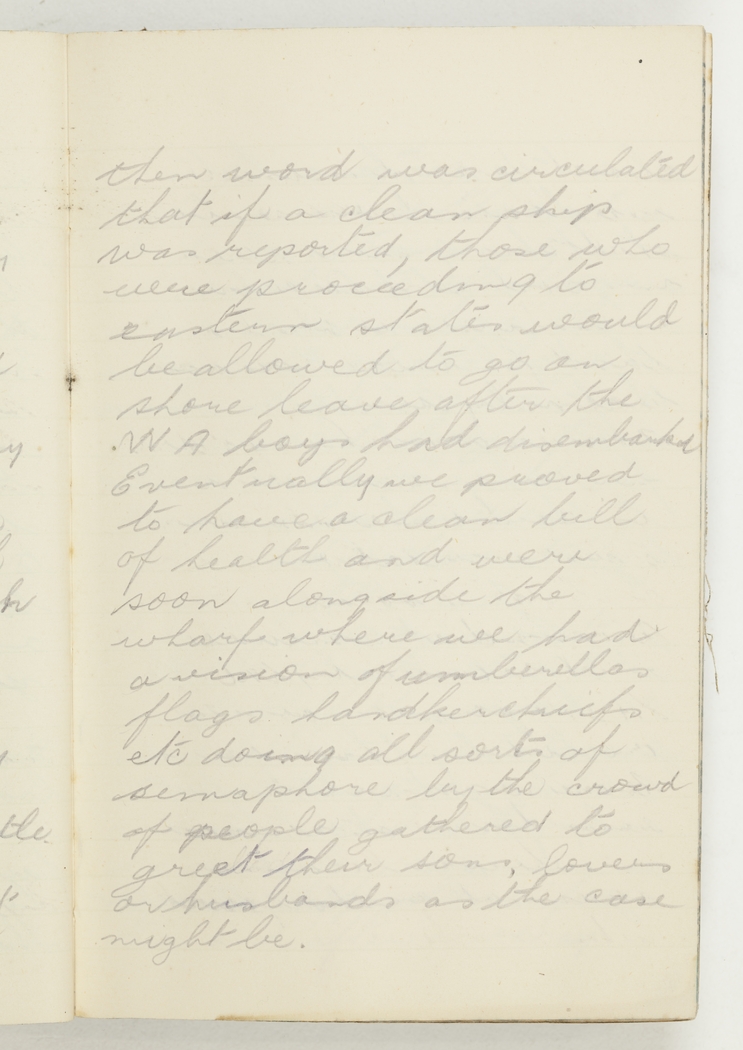 then word was circulated
that if a clean ship
was reported, those who
were proceeding to
eastern states would
be allowed to go on
shore leave after the
W A boys had disembarked
Eventually we proved
to have a clean bill
of health and were
soon alongside the
wharf where we had
a vision of umberellas
flags handkerchiefs
etc doing all sorts of
semaphore by the crowd
of people gathered to
greet their sons, lovers
or husbands as the case
might be.